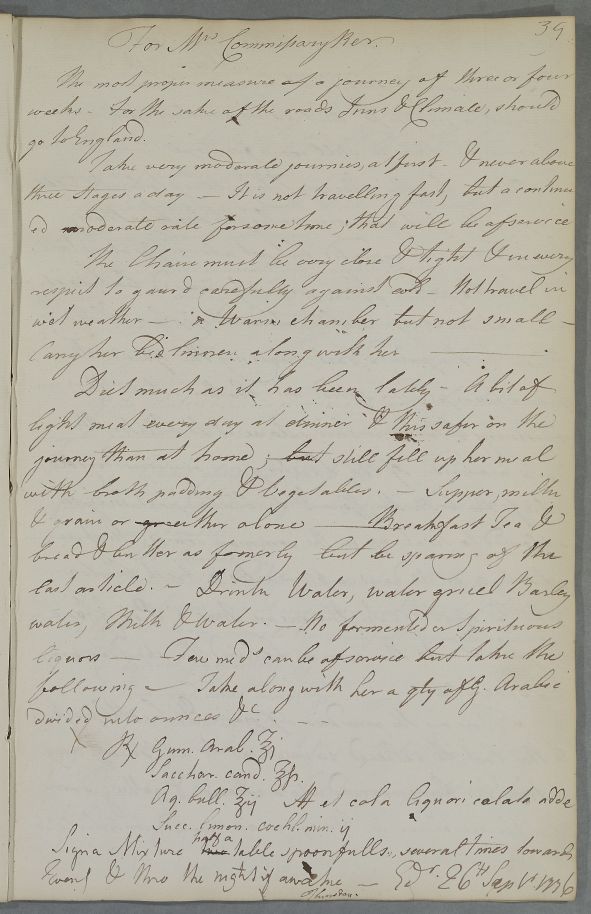 39
For Mrs Commissary Ker.
The most proper measure as a journey of three or four
weeks - for the sake of the roads Inns & Climate, should
go to England.
Take very moderate journies, at first - & never above
three Stages a day - It is not travelling fast, but a continu
ed moderate rate for some time, that will be of service
The Chaise must be very close & tight & in every
respect to gaurd carefully against cold - Not travel in
wet weather - a Warm chamber but not small -
Carry her Bed linnen along with her
Diet much as it has been lately - A bit of
light meat every day at dinner & this safer on the
journey than at home; but still fill up her meal
with broth pudding & Vegetables. - Supper, milk
& grain or either alone - Breakfast Tea &
bread & butter as formerly but be sparing of the
last article. - Drink Water, water gruel Barley
water, Milk & Water. - No fermented or Spirituous
liquors - Few meds can be of service but take the
following - Take along with her a qty of G. Arabic
divided into ounces &c
℞ Gum. Arab. ℥j
Sacchar. cand. ℥ß
Aq. bull. ℥ij M et cola liquori colato adde
Succ. limon. cochl. min. ij
half a
Signa Mixture table spoonfulls, several times towards
Eveng & thro the night if awake - Edr. 26th Sept 1776
Thursday.